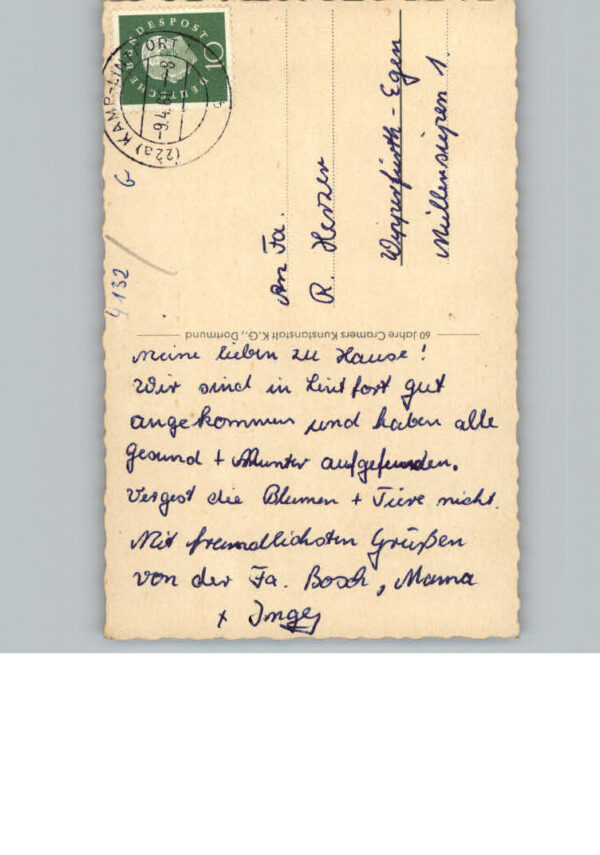 DEUTSCHE BUNDESPOST
10
(22a) KAMP-LINTFORT
-9.4.60-8
G
4132
An Fa.
R. Herzer
Wipperfürth-Egen
Müllensiepen 1.
60 Jahre Cramers Kunstanstalt K.G., Dortmund
Meine lieben zu Hause!
Wir sind in Lintfort gut
angekommen und haben alle
gesund + Munter aufgefunden.
Vergest die Blumen + Tiere nicht.
Mit freundlichsten Grüßen
von der Fa. Bosch, Mama
+ Inge